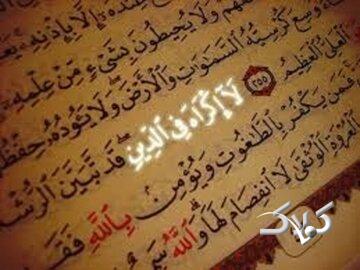 إِلَّا بِإِذْنِهِ يَعْ
وَلَا يُحِيطُونَ بِشَيْءٍ مِّنْ عِلْمِهِ
وَسِعَ كُرْسِيُّهُ السَّمَٰوَٰتِ وَالْأَرْضَ وَلَا يَئُودُهُ حِفْظُهُ
الْعَلِيُّ الْعَظِيمُ ٢٥٥ لَا إِكْرَاهَ فِي الدِّينِ قَد تَّبَيَّنَ الرُّشْ
فَمَن يَكْفُرْ بِالطَّٰغُوتِ وَيُؤْمِن بِاللَّهِ فَقَ
الْعُرْوَةِ الْوُثْقَىٰ لَا انفِصَامَ لَهَا وَاللَّهُ سَ